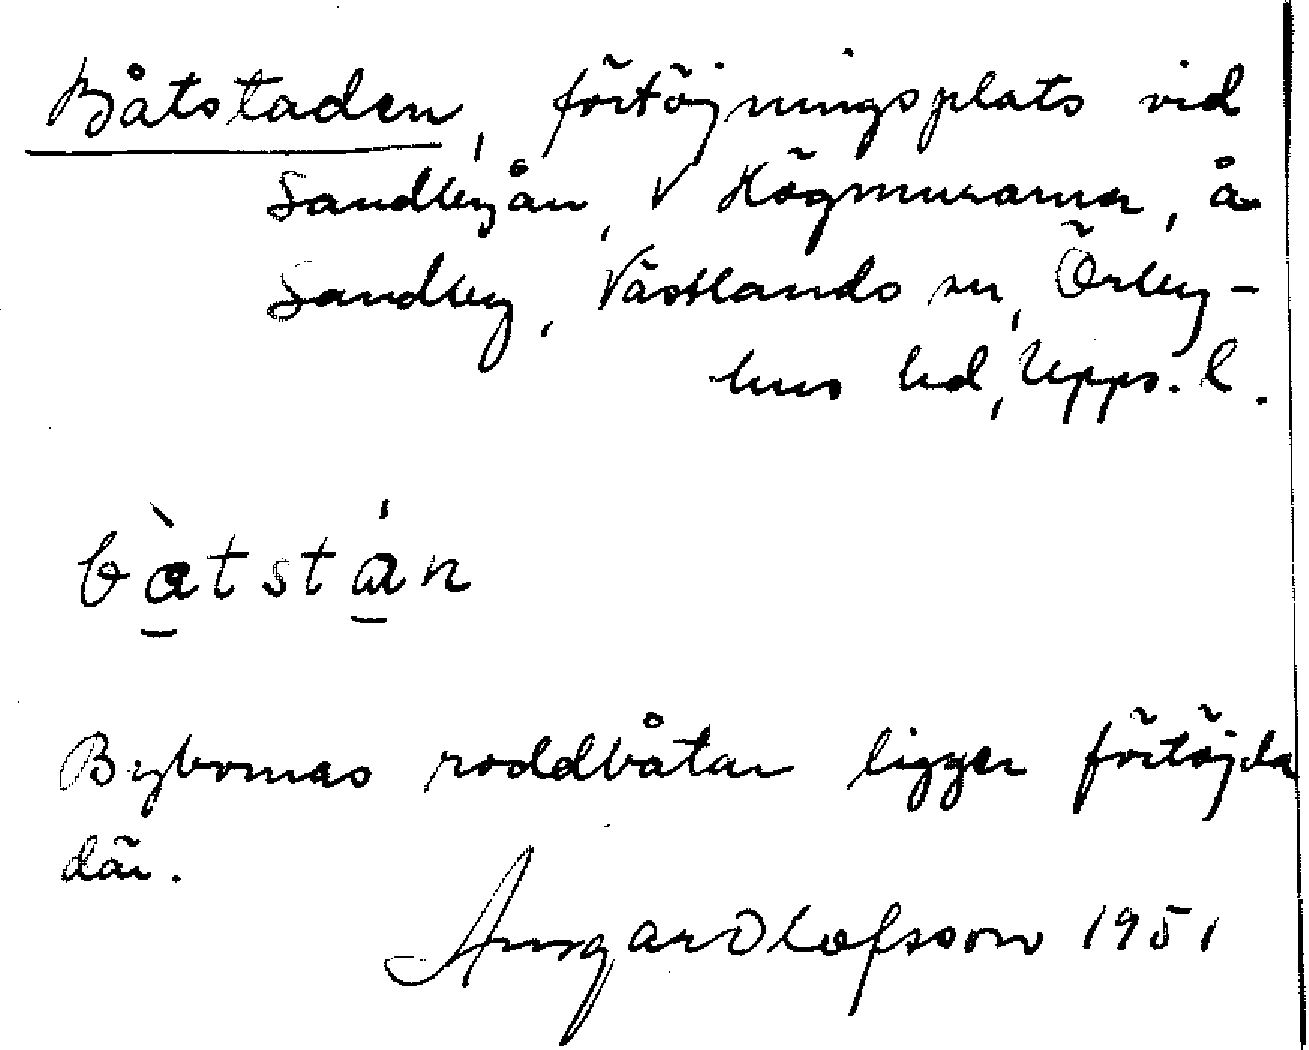 Båtstaden, förtöjningsplats vid
Sandbyån, V Högmurarna, å
Sandby, Västlands sn, Örby-
hus hd, Upps. l.
bàtstán
Bybornas roddbåtar ligger förtöjda
där.
Ansgar Olofsson 1951